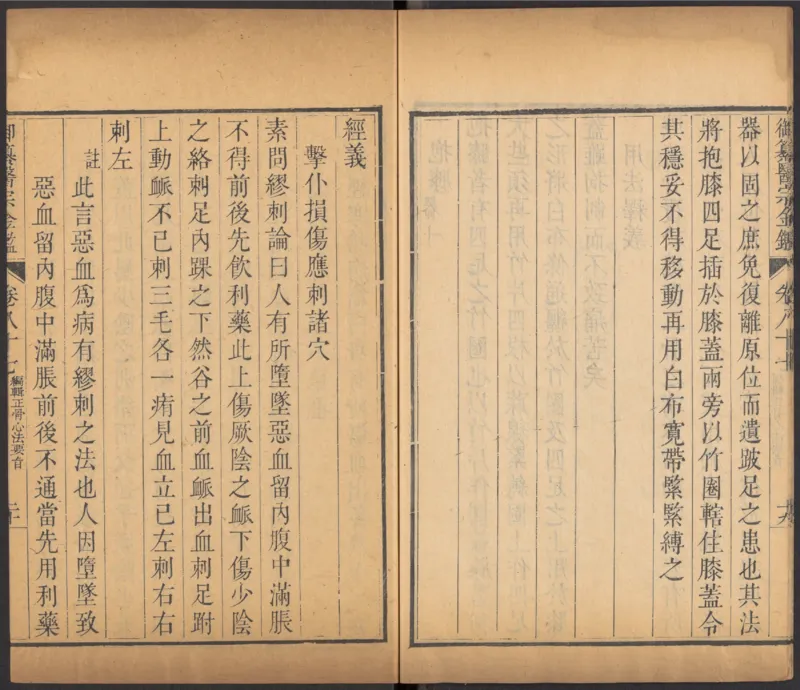 御纂醫宗金鑑 卷八十七
器以固之庶免復離原位而遺跛足之患也其法
將抱膝四足插於膝蓋兩旁以竹圈轄住膝蓋令
其穩妥不得移動再用白布寬帶緊緊縛之
經義
擊仆損傷應刺諸穴
素問繆刺論曰人有所墮墜惡血留內腹中滿脹
不得前後先飲利藥此上傷厥陰之衇下傷少陰
之絡刺足內踝之下然谷之前血衇出血刺足跗
上動衇不已刺三毛各一痏見血立已左刺右右
刺左
註
此言惡血爲病有繆刺之法也人因墮墜致
惡血留內腹中滿脹前後不通當先用利藥
御纂醫宗金鑑 卷八十七 編輯正骨心法要旨 二十